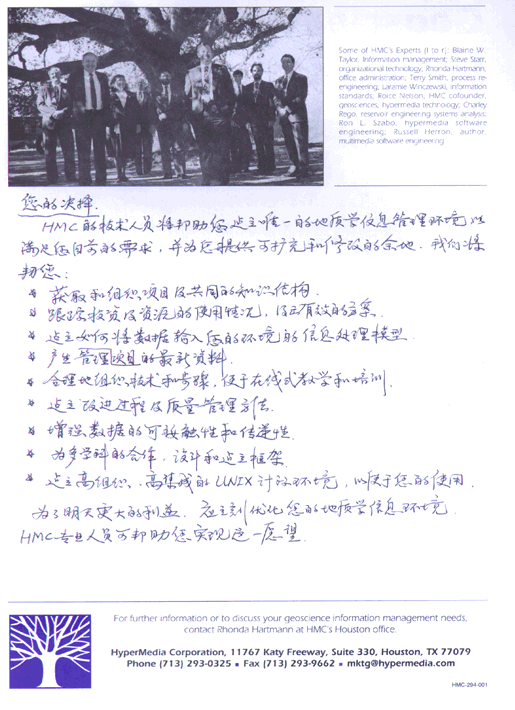 Some of HMC's Experts (l to r): Blaine W.
Taylor, Information management; Steve Starr,
organizational technology; Rhonda Hartmann,
office administration; Terry Smith, process re-
engineering; Laramie Winczewski, information
standards; Roice Nelson, HMC cofounder,
geosciences, hypermedia technology; Charley
Rego, reservoir engineering systems analysis;
Ron L. Szabo, hypermedia software
engineering; Russell Herron, author,
multimedia software engineering
您的决择
HMC的技术人员将帮助您建立唯一的地质学信息管理环境以
满足您目前的要求，并为您提供可扩充和修改的余地．我们将
帮您：
* 获取和组织项目及共同的知识结构．
* 跟踪投资及资源的使用情况，
* 建立如何将数据输入您的环境的信息处理模型．
* 产生管理项目的最新资料．
* 合理地组织技术和步骤，便于在线式教学和培训．
* 建立改进过程及质量管理方法．
* 增强数据的可接触性和传递性．
* 为多学科的合作，设计和建立框架．
* 建立高组织、高集成的UNIX计算环境，以便于您的使用．
为了明天更大的利益，应立刻优化您的地质学信息环境．
HMC专业人员可帮助您实现这一愿望．
For further information or to discuss your geoscience information management needs,
contact Rhonda Hartmann at HMC's Houston office.
HyperMedia Corporation, 11767 Katy Freeway, Suite 330, Houston, TX 77079
Phone (713) 293-0325 ▪ Fax (713) 293-9662 ▪ mktg@hypermedia.com
HMC-294-001